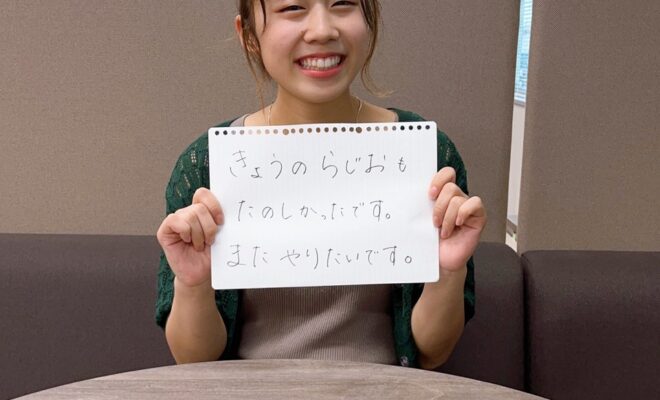 きょうの らじおも
たのしかったです。
また やりたいです。